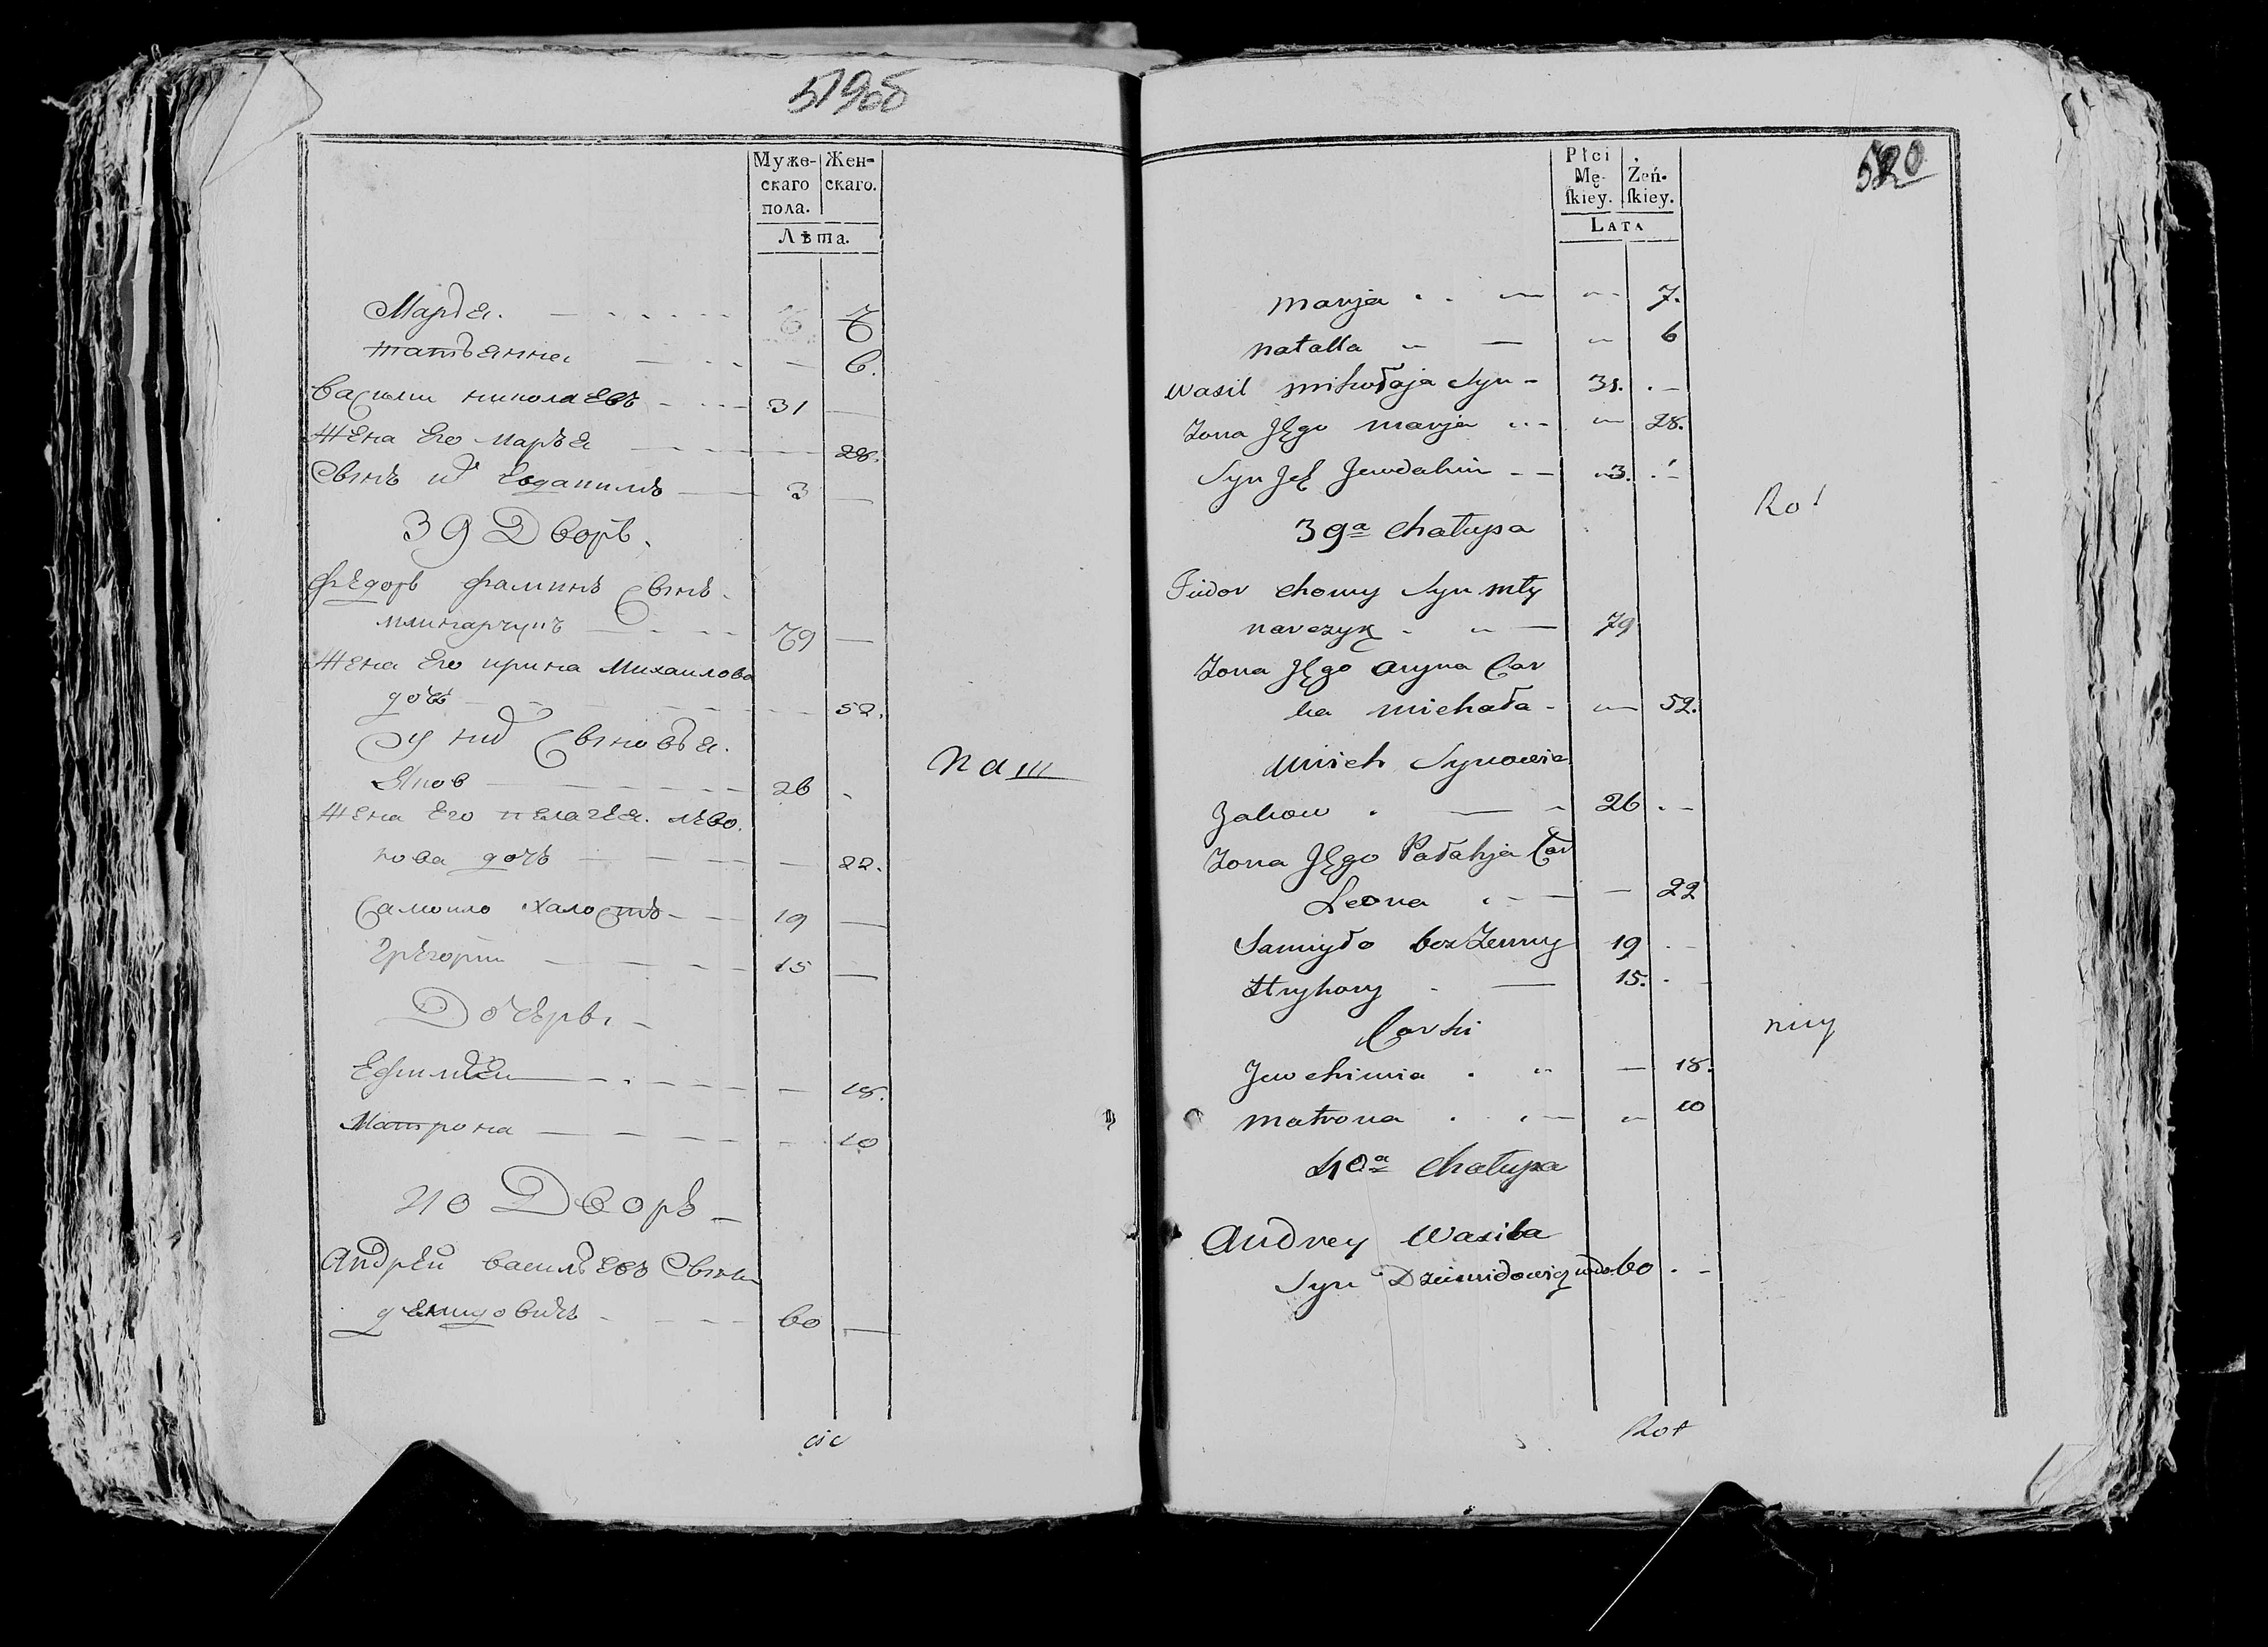 519об
Муже- Жен-
скаго скаго.
пола.
Лѣта.
Марья. 7
татьянна 6.
василии николаевъ 31
жена его марья 28.
Сынъ ихъ Евдакимъ 3
39 Дворъ.
Федоръ фаминъ сынъ
млинарчукъ 79
жена его ирина Михаилова
дочь 52.
У нихъ сыновья.
Яков 26
жена его пелагея. лево.
нова дочь 22.
Самоило халостъ 19
Грегории 15
Дочери
Ефимия 18.
Матрона 10
40 Дворъ
Андрей васильевъ сынъ
демидовичъ 60
На
520
Płci
Mę- Żeń-
ſkiey. ſkiey.
LATA
marja 7.
natalla 6
wasil mikołaja Syn 31.
Zona Jęgo marja 28.
Syn Jch Jewdakim 3.
39a Chałupa
Fiedor Chomy Syn mły
narczyk 79
Zona Jęgo aryna Cor
ka michała 52.
unich Synowie
Jakow 26
Zona Jęgo Pałahja Cor
Leona 22
Samuyło bezZenny 19
Hryhory 15.
Corki
Jewchimia 18.
matrona 10
40a Chałupa
Andrey Wasila
Syn Dziemidowicz wdo. 60